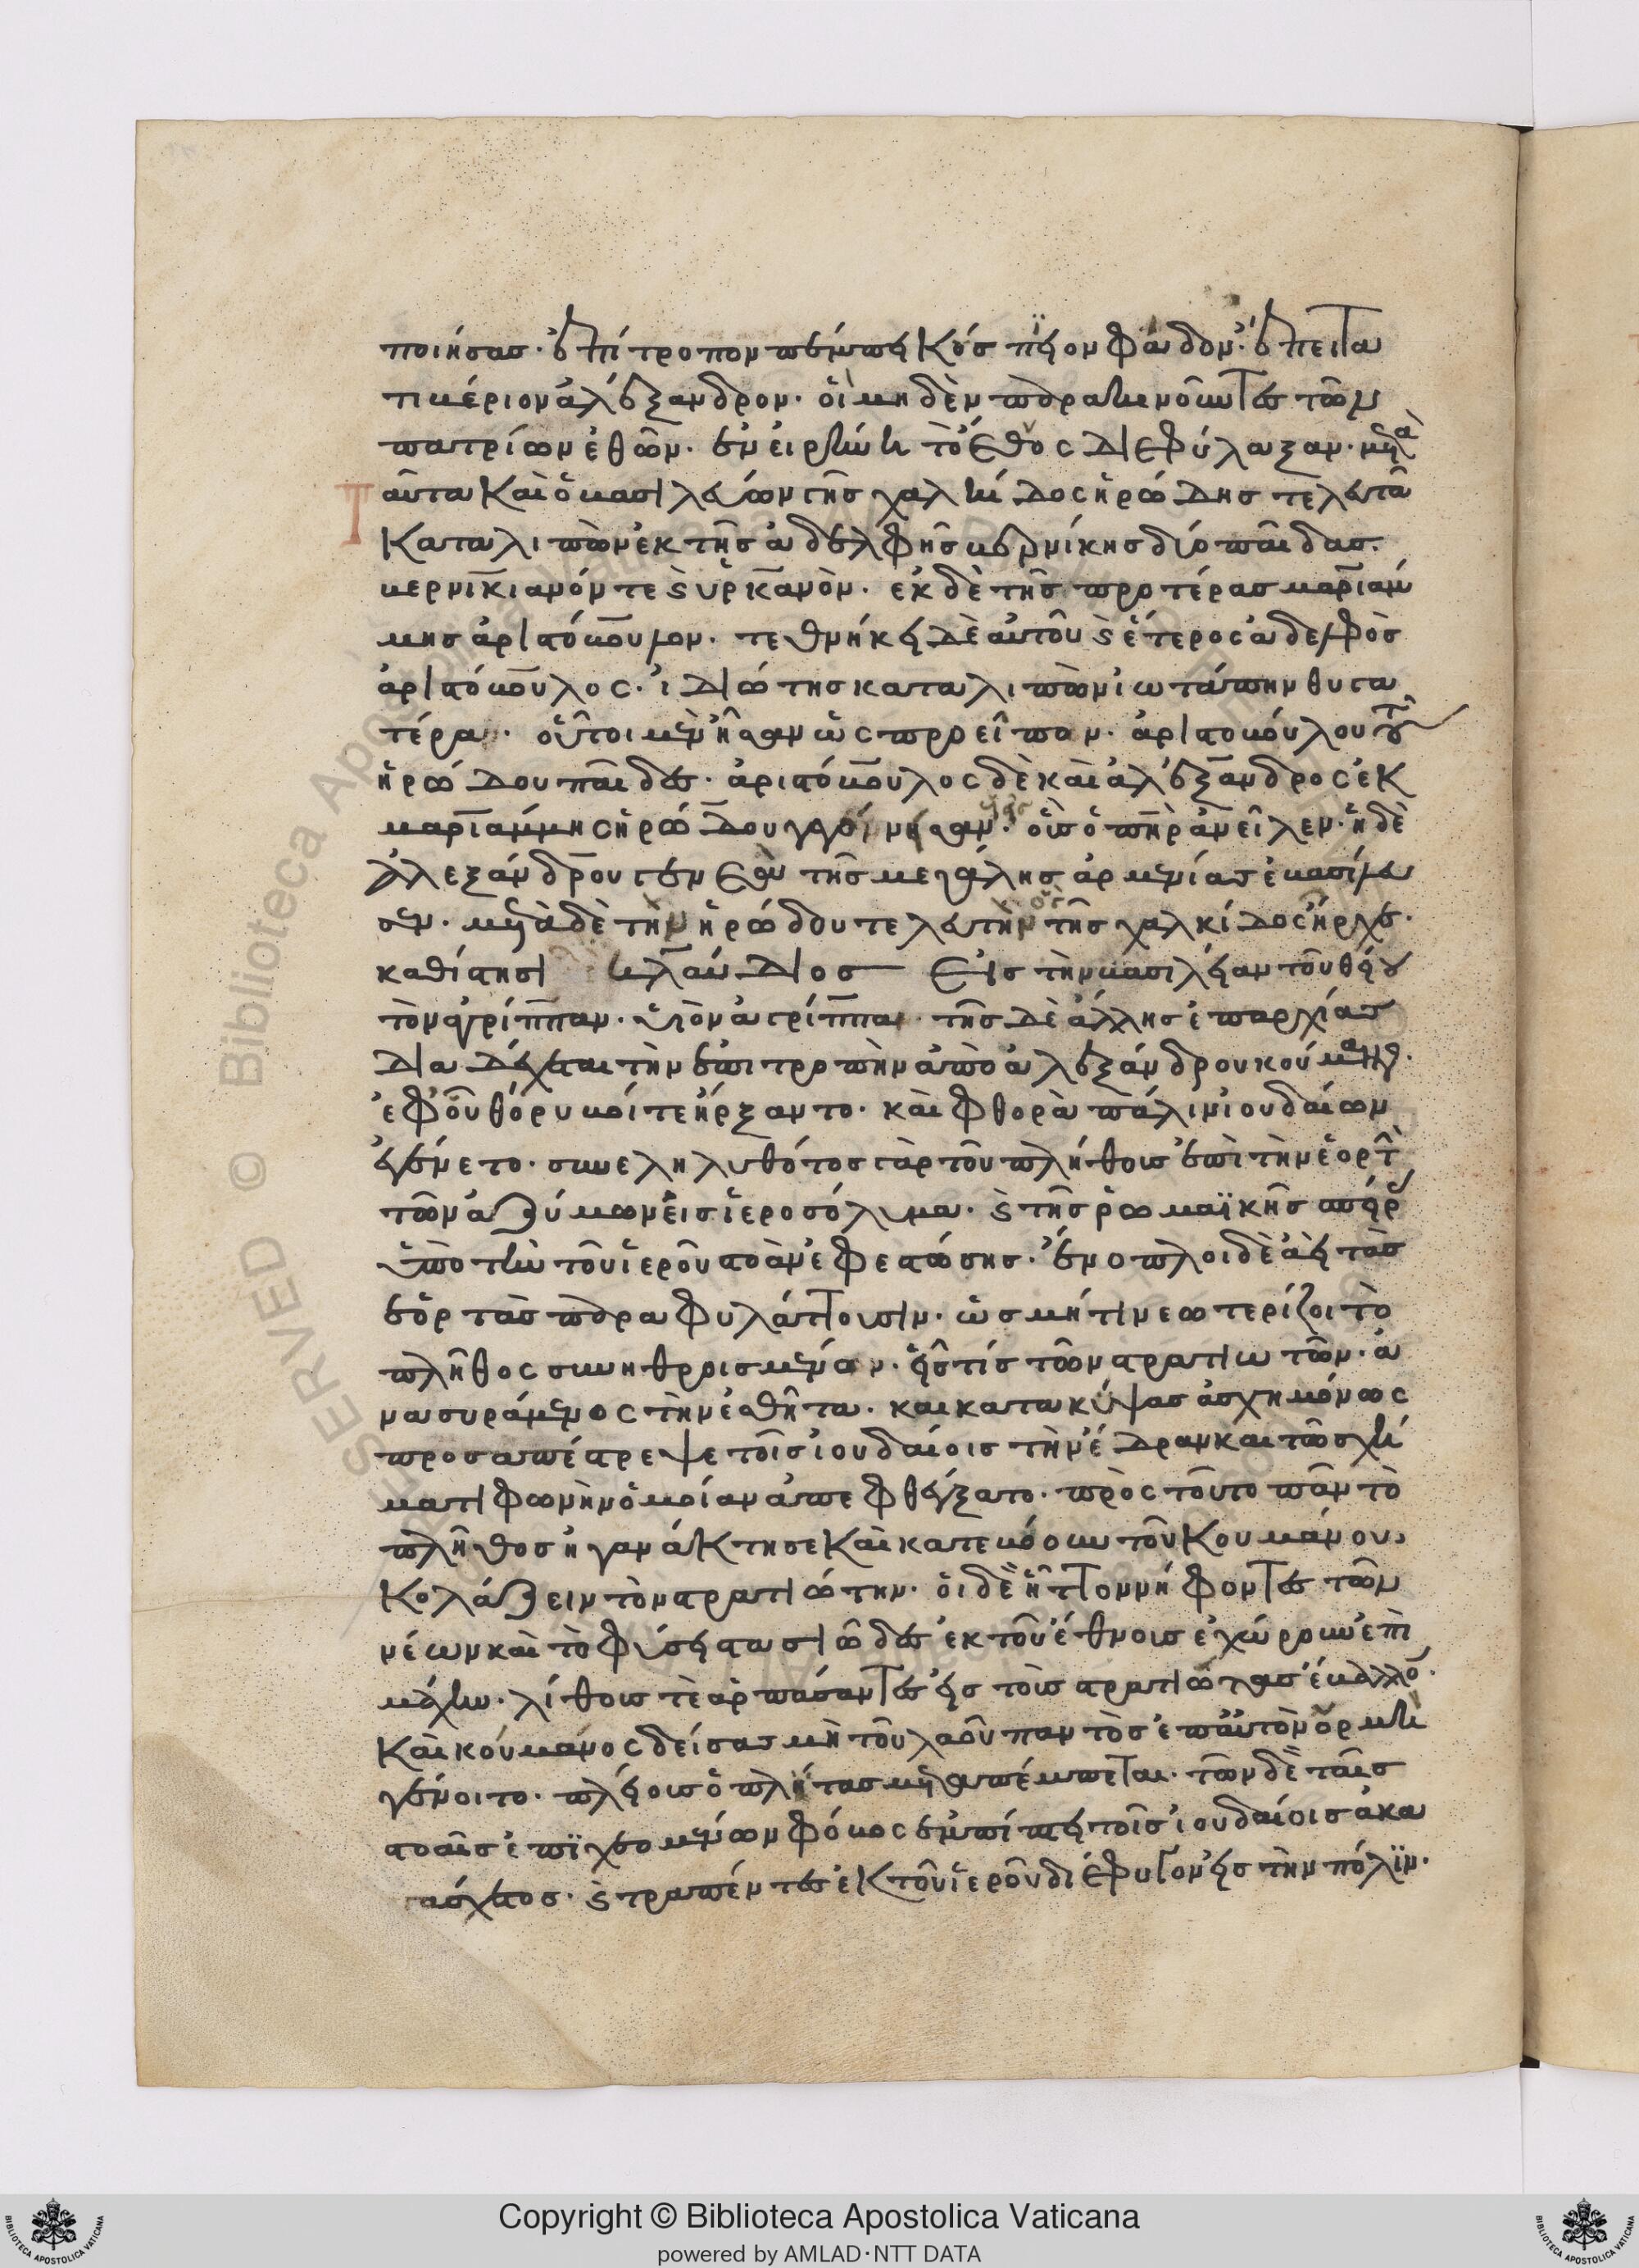 ποιήσας· ἐπίτροπον πέμπει κούσπϊον φάδον· ἔπειτα
τιβέριον ἀλέξανδρον· οἳ μηδὲν παρακινοῦντες τῶν
πατρίων ἐθῶν· ἐν εἰρήνη τὸ ἔθνος διεφύλαξαν· μετὰ
Ταῦτα καὶ ὁ βασιλεύων τῆς χαλκίδος ἡρώδης τελευτᾶ
καταλιπὼν ἐκ τῆς ἀδελφῆς βερνίκης δύο παῖδας·
βερνικιανόν τε καὶ ὑρκανὸν· ἐκ δὲ τῆς προτέρας μαριάμ
μης ἀριστόβουλον· τεθνήκει δὲ αὐτοῦ καὶ ἕτερος ἀδελφὸς
ἀριστόβουλος· ἰδιώτης καταλιπὼν ἰωτάπην θυγα
τέρα· οὗτοι μὲν ἦσαν ὡς προεῖπον· ἀριστοβούλου τοῦ
ἡρώδου παῖδες· ἀριστόβουλος δὲ καὶ ἀλέξανδρος ἐκ
μαριάμμης ἡρώδου γεγόνεισαν· οὓς ὁ πατὴρ ἀνεῖλεν· ἡ δὲ
ἀλεξάνδρου γενεὰ τῆς μεγάλης ἀρμενίας ἐβασίλευ
σεν· μετὰ δὲ τὴν ἡρώδου τελευτὴν ὃς τῆς χαλκίδος ἦρχε·
καθίστησι κλαύδιος εἰς τὴν βασιλείαν τοῦ θείου
τὸν ἀγρίππαν· υἱὸν ἀγρίππα· τῆς δὲ ἄλλης ἐπαρχίας
διαδέχεται τὴν ἐπιτροπὴν ἀπὸ ἀλεξάνδρου κούμανος·
ἐφ' οὗ θόρυβοί τε ἤρξαντο· καὶ φθορὰ πάλιν ἰουδαίων
ἐγένετο· συνεληλυθότος γὰρ τοῦ πλήθους ἐπὶ τὴν ἑορτὴν
τῶν ἀζύμων εἰς ἱεροσόλυμα· καὶ τῆς ῥωμαϊκῆς σπείρας
ὑπὸ τὴν τοῦ ἱεροῦ στοὰν ἐφεστώσης· ἔνοπλοι δὲ ἀεὶ τὰς
ἑορτὰς παραφυλάττουσιν· ὡς μή τι νεωτερίζοι τὸ
πλῆθος συνηθροισμένον· εἷς τίς τῶν στρατιωτῶν· ἀ
νασυράμενος τὴν ἐσθῆτα· καὶ κατακύψας ἀσχημόνως
προσαπέστρεψε τοῖς ἰουδαίοις τὴν ἕδραν καὶ τῶ σχή
ματι φωνὴν ὁμοίαν ἀπεφθέγξατο· πρὸς τοῦτο πᾶν τὸ
πλῆθος ἠγανάκτησε καὶ κατεβόων τοῦ κουμάνου
κολάζειν τὸν στρατιώτην· οἱ δὲ ἧττον νήφοντες τῶν
νέων καὶ τὸ φύσει στασιῶδες ἐκ τοῦ ἔθνους ἐχώρουν ἐπὶ
μάχην· λίθους τε ἁρπάσαντες εἰς τοὺς στρατιώτας ἔβαλλον·
καὶ κούμανος δείσας μὴ τοῦ λαοῦ παντὸς ἐπ' αὐτὸν ὁρμὴ
γένοιτο· πλείους ὁπλίτας μεταπέμπεται· τῶν δὲ ταῖς
στοαῖς ἐπιχεομένων φόβος ἐμπίπτει τοῖς ἰουδαίοις ἀκα
τάσχετος· καὶ τραπέντες ἐκ τοῦ ἱεροῦ διέφυγον εἰς τὴν πόλϊν·
Copyright © Biblioteca Apostolica Vaticana
powered by AMLAD·NTT DATA